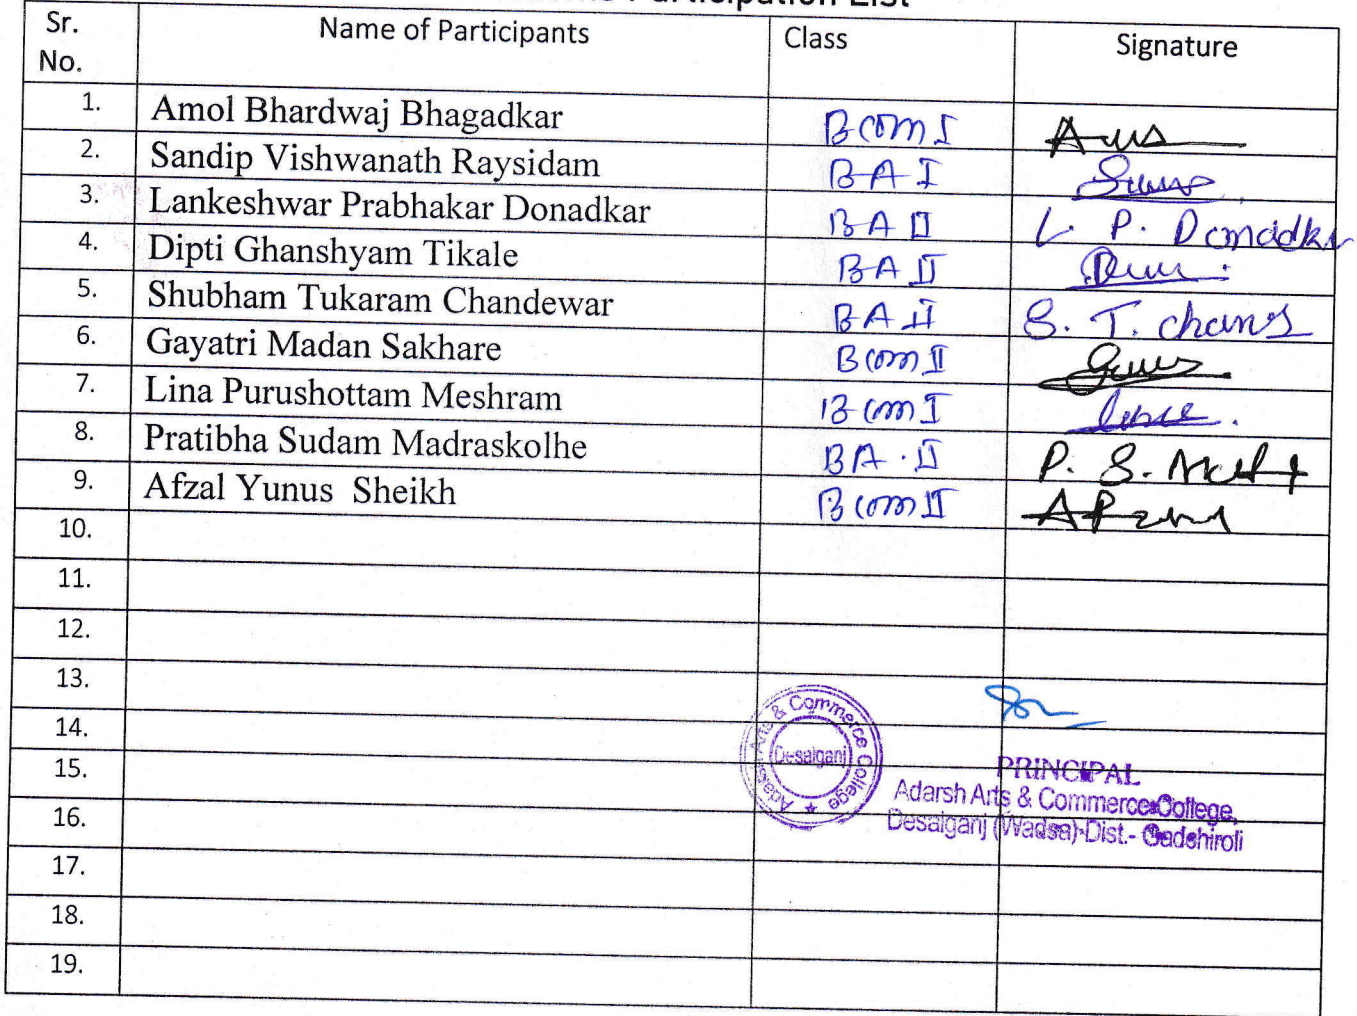 Participation List
Sr. No. Name of Participants Class Signature
1. Amol Bhardwaj Bhagadkar B com I
2. Sandip Vishwanath Raysidam B A I
3. Lankeshwar Prabhakar Donadkar B A II L. P. Donadkr
4. Dipti Ghanshyam Tikale B A II
5. Shubham Tukaram Chandewar B A II S. T. chans
6. Gayatri Madan Sakhare B com II
7. Lina Purushottam Meshram B com I
8. Pratibha Sudam Madraskolhe BA . II P. S.
9. Afzal Yunus Sheikh B com II
10.
11.
12.
13.
14.
15.
16.
17.
18.
19.
Adarsh Arts & Commerce College
Desaiganj
PRINCIPAL
Adarsh Arts & Commerce College,
Desaiganj (Wadsa) Dist.- Gadchiroli